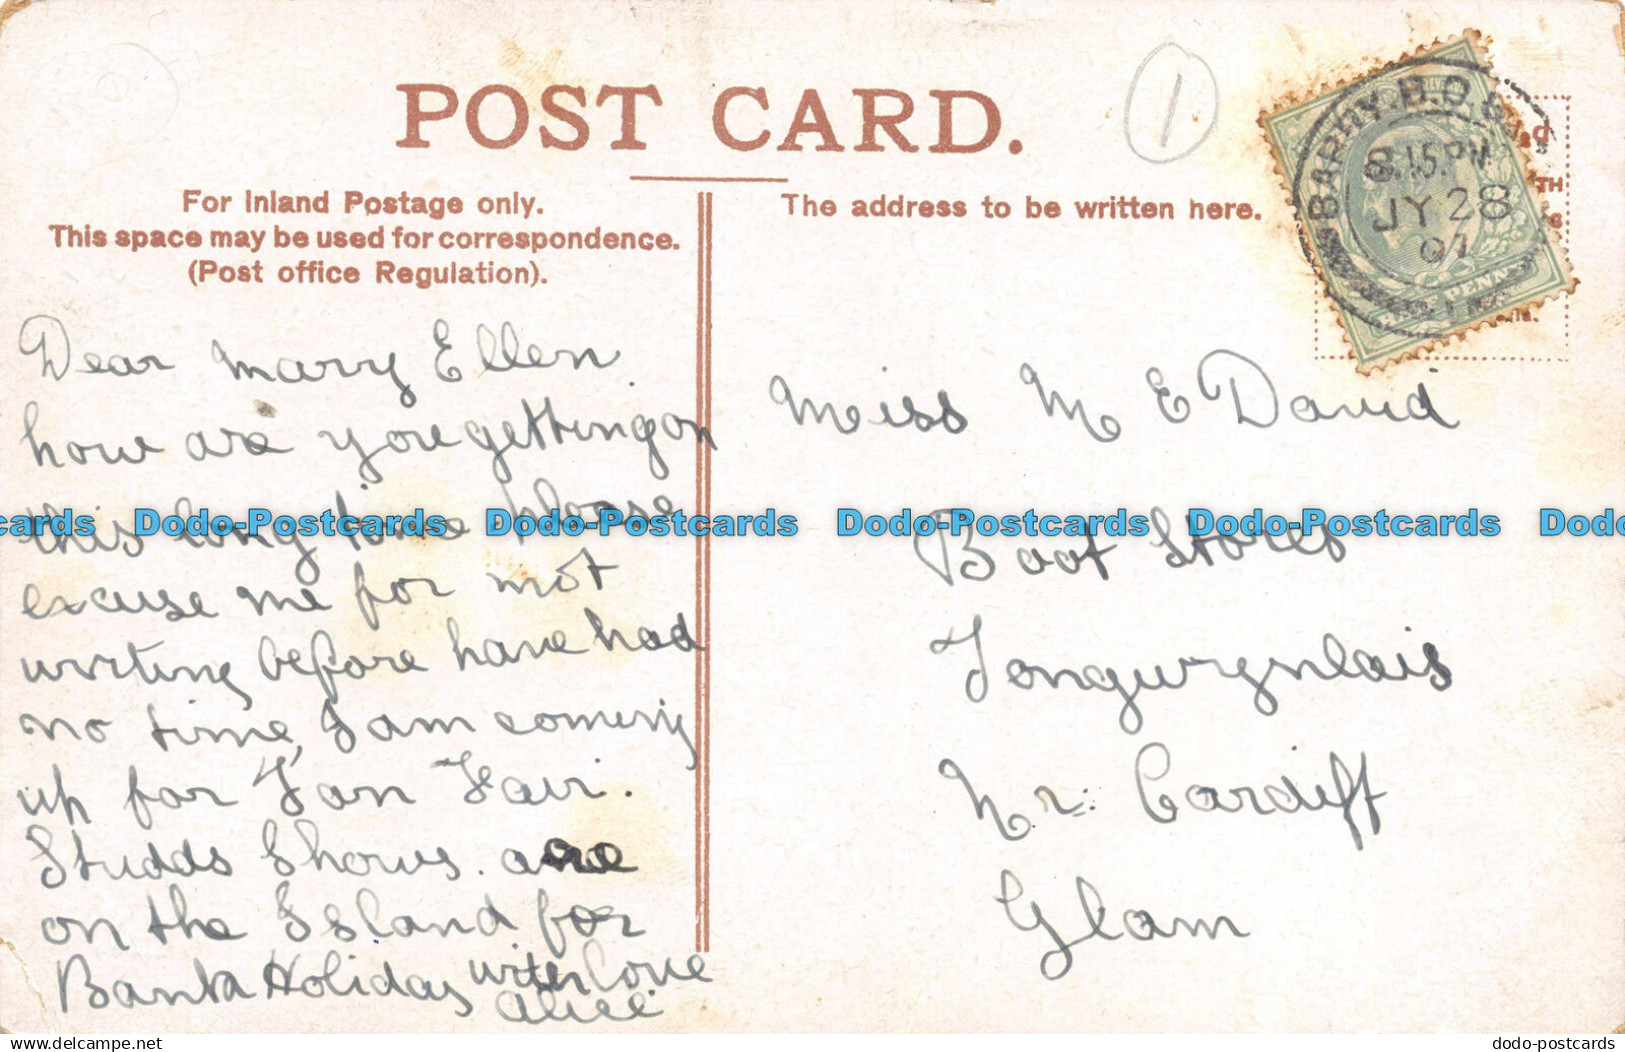 POST CARD.
1
For Inland Postage only.
This space may be used for correspondence.
(Post office Regulation).
The address to be written here.
BARRY
8.15.PM
JY 28
07
Dear Mary Ellen
how are you getting on
this long time please
excuse me for not
writing before have had
no time, I am comeing
up for Ton Fair.
Studds Shows. are
on the Island for
Bank Holiday with love
Alice
Miss M E David
Boot Stores
Tongwrynlais
Nr. Cardiff
Glam
cards Dodo-Postcards Dodo-Postcards Dodo-Postcards Dodo-Postcards Dodo
delcampe.net
dodo-postcards